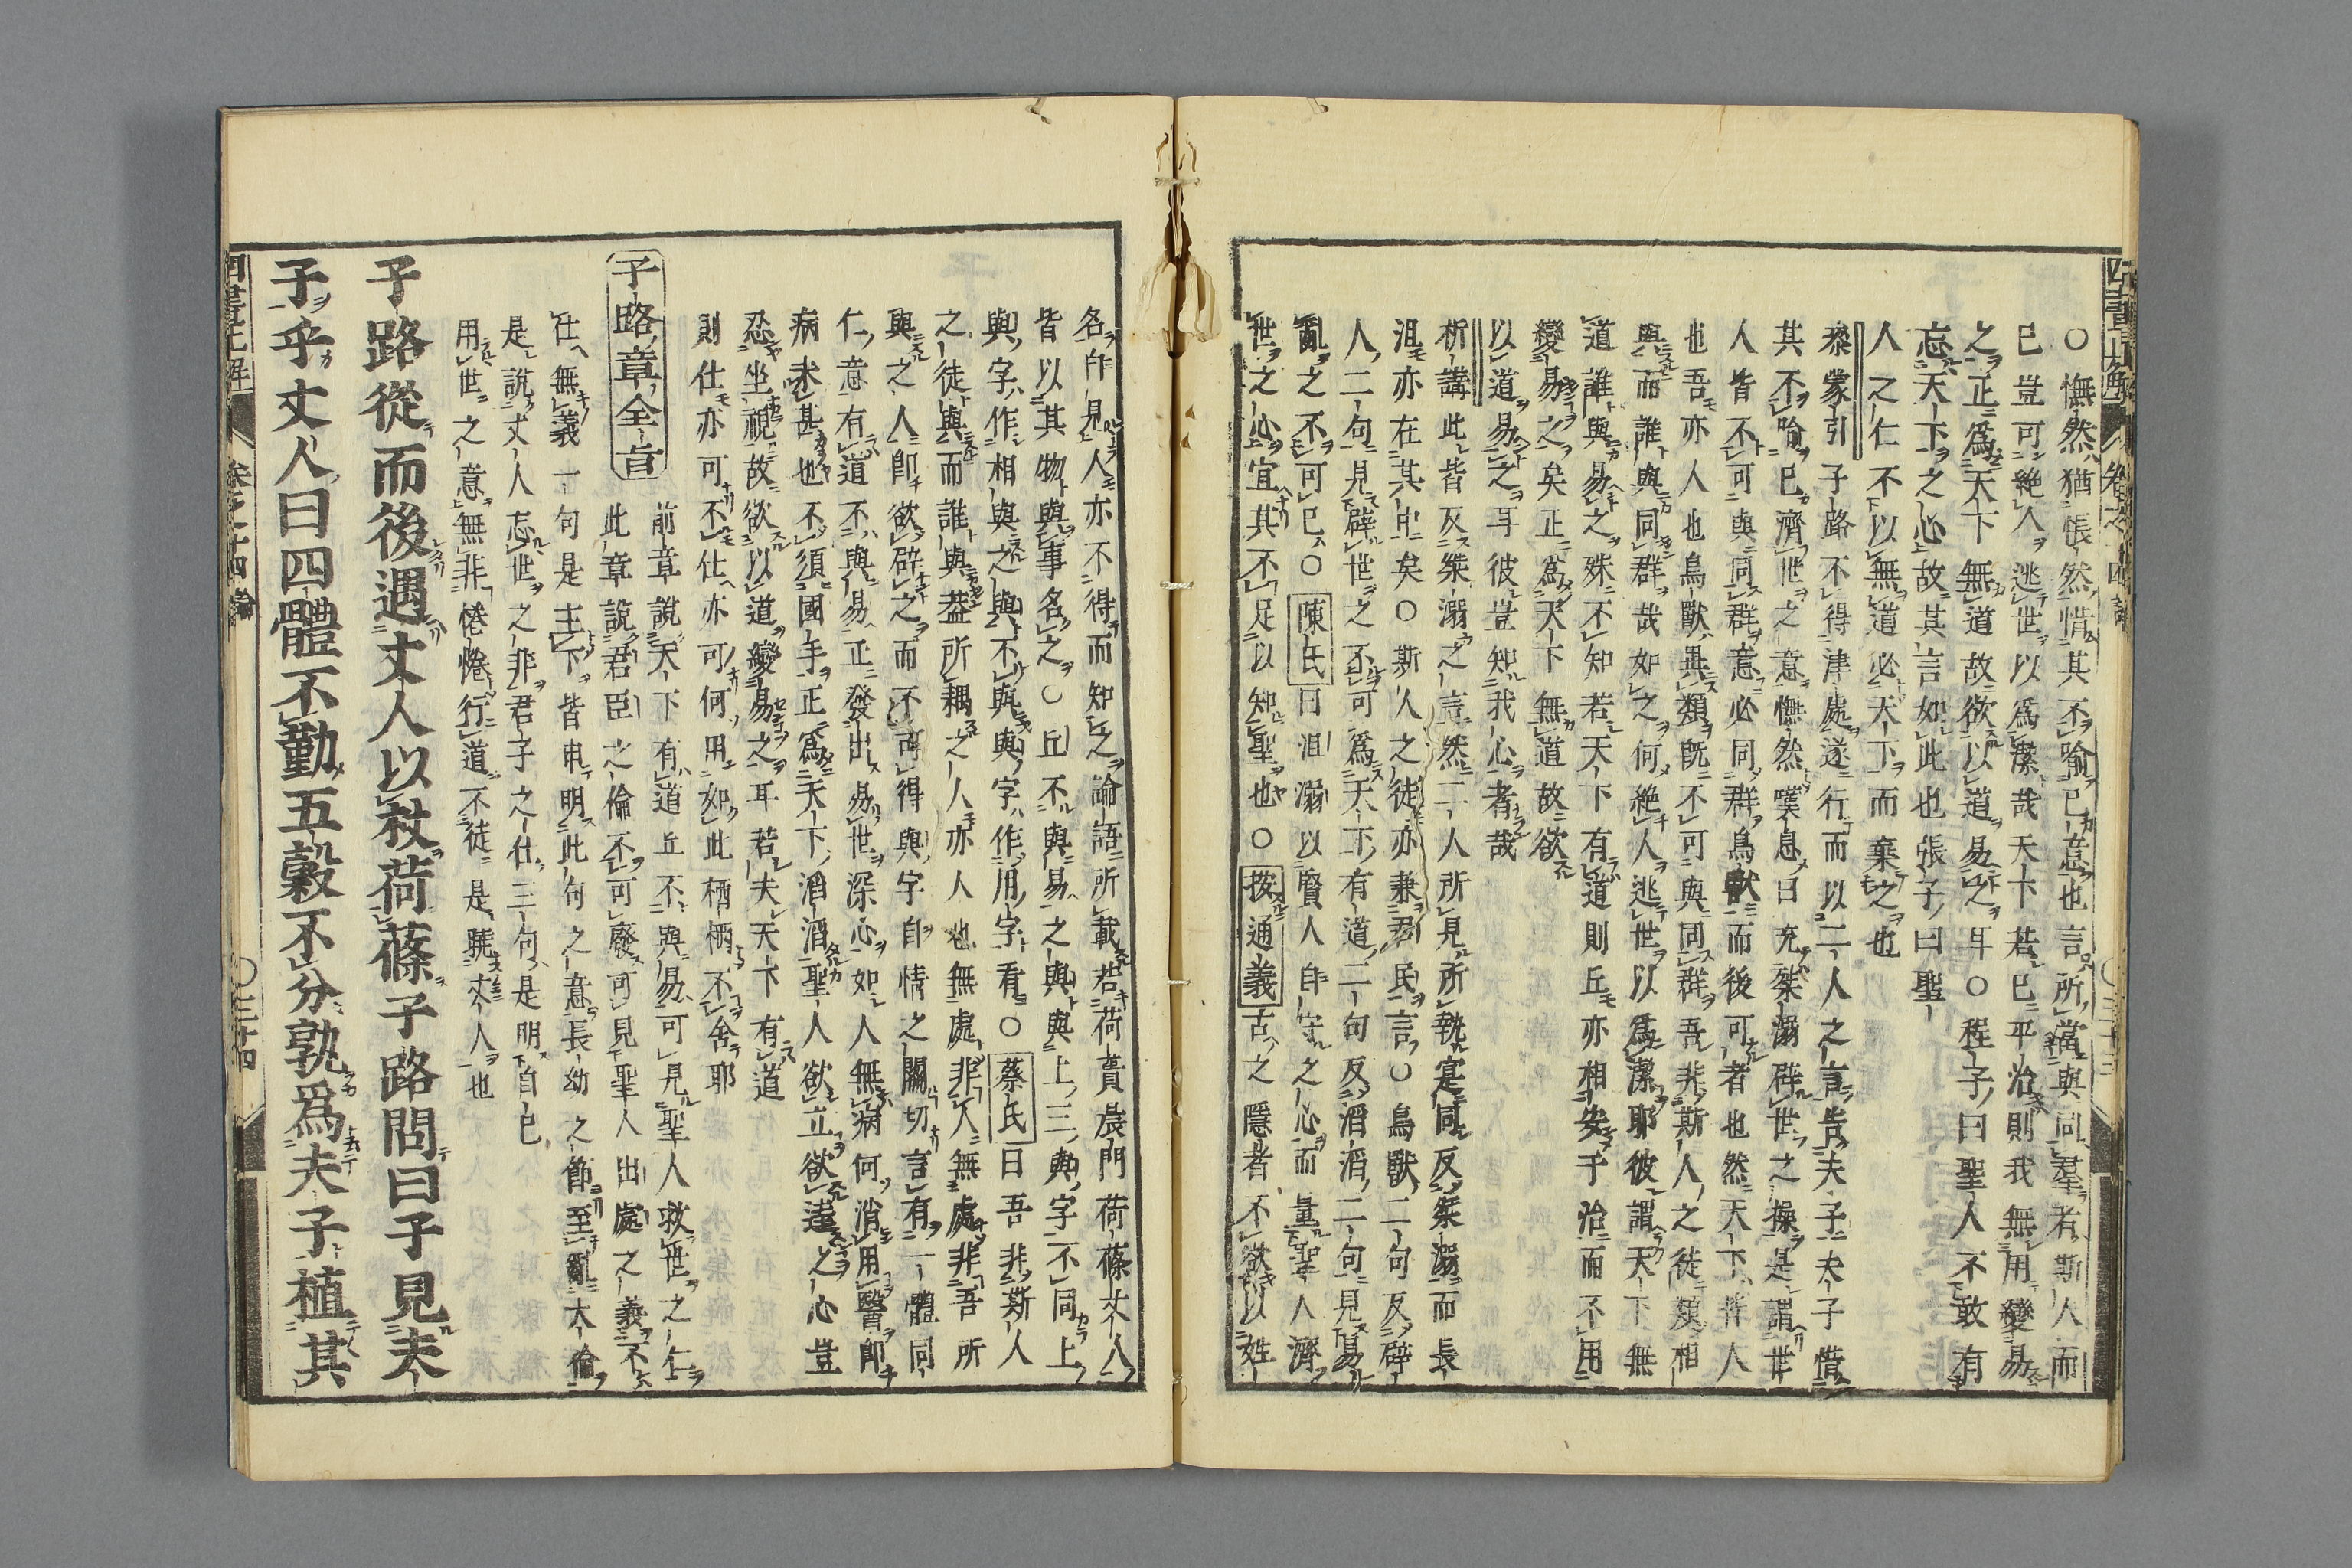 ○憮然猶悵然惜其不喩己意也言所當與同羣者斯人而
已豈可絶人逃世以爲潔哉天下若已平治則我無用變易
之正爲天下無道故欲以道易之耳○程子曰聖人不敢有
忘天下之心故其言如此也張子曰聖
人之仁不以無道必天下而棄之也
蒙引子路不得津處遂行而以二人之言告夫子夫子惜
其不喩己濟世之意憮然嘆息曰充桀溺辟世之操是謂世
人皆不可與同群意必同群鳥獸而後可者也然天下皆人
也吾亦人也鳥獸異類旣不可與同群吾非斯人之徒類相
與而誰與同群哉如之何絶人逃世以爲潔耶彼謂天下無
道誰與易之殊不知若天下有道則丘亦相安于治而不用
變易之矣正爲天下無道故欲
以道易之耳彼豈知我心者哉
析講此皆反桀溺之言然二人所見所執寔同反桀溺而長
沮亦在其中矣○斯人之徒亦兼君民言○鳥獸二句反辟
人二句見辟世之不可爲天下有道二句反滔滔二句見易
亂之不可已○陳氏曰沮溺以賢人自守之心而量聖人濟
世之心宜其不足以知聖也○按通義古之隱者不欲以姓
名自見人亦不得而知之論語所載若荷蕢晨門荷蓧丈人
皆以其物與事名之○丘不與易之與與上三與字不同上
與字作相與之與不與與字作用字看○蔡氏曰吾非斯人
之徒與而誰與葢所耦之人亦人也無處非人無處非吾所
與之人卽欲辟之而不可得與字自情之關切言有一體同
仁意有道不與易正發出易世深心如人無病何消用醫卽
病未甚也不須國手正爲天下滔滔聖人欲立欲達之心豈
忍坐視故欲以道變易之耳若夫天下有道
則仕亦可不仕亦可何用如此栖栖不舍耶
子路章全旨
前章說天下有道丘不與易可見聖人救世之仁
此章說君臣之倫不可廢可見聖人出處之義不
仕無義一句是主下皆申明此句之意長幼之節至亂大倫
是說丈人忘世之非君子之仕三句是明自己
用世之意無非惓惓行道不徒是號求人也
子路從而後遇丈人以杖荷蓧子路問曰子見夫
子乎丈人曰四體不勤五穀不分孰爲夫子植其